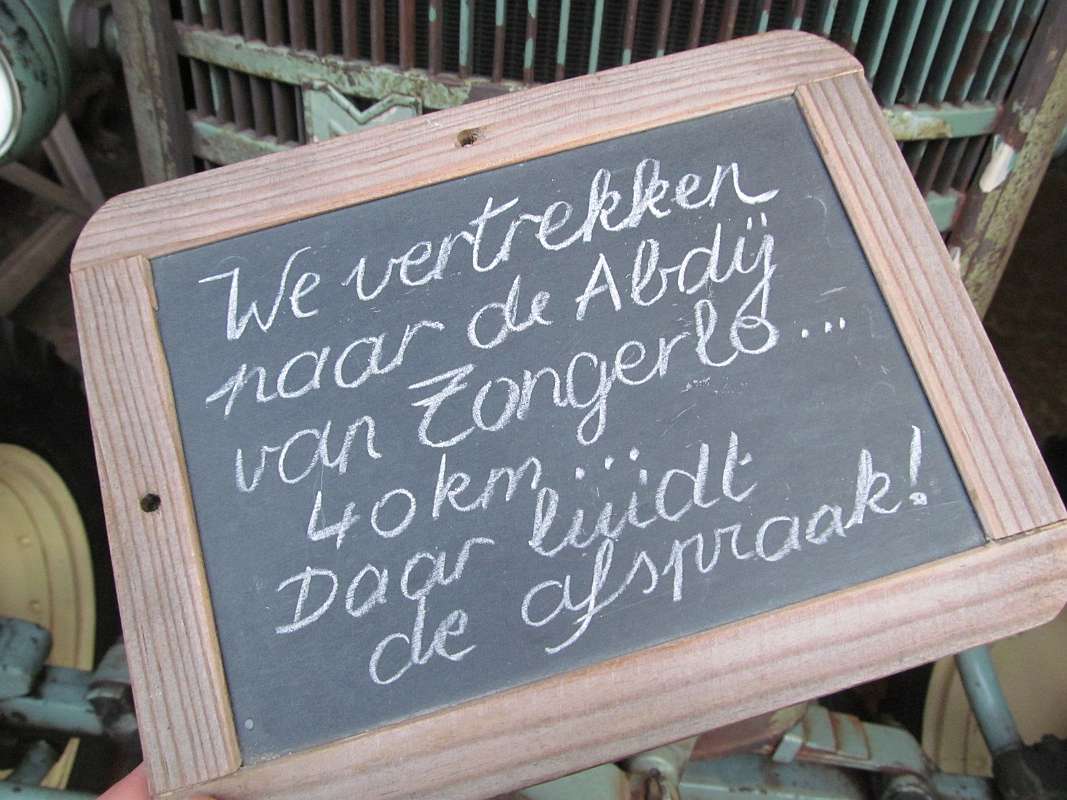 We vertrekken
naar de Abdij
van Zongerlo...
40km...
Daar luidt
de afspraak!